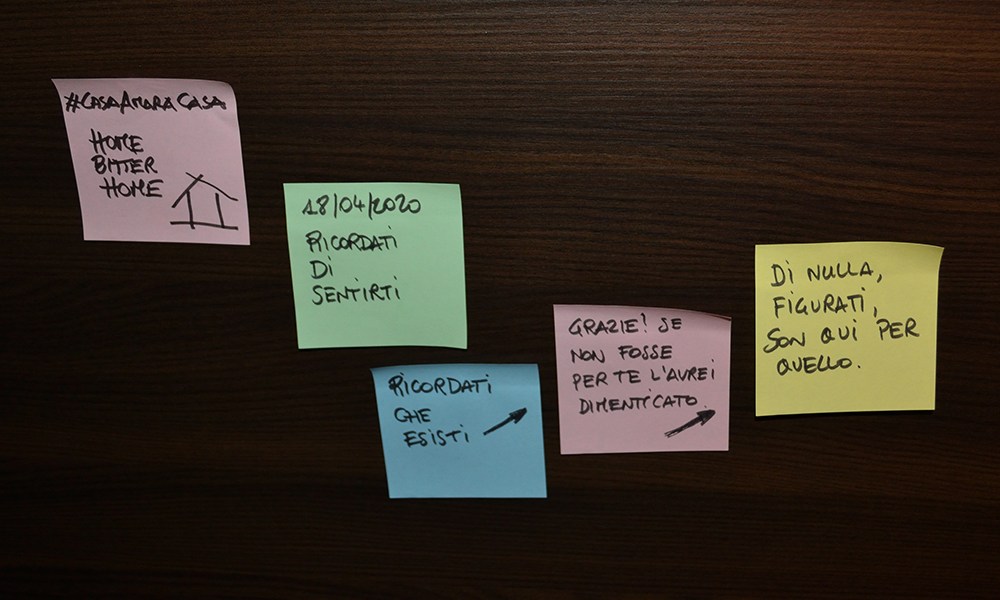 #CASAAMARACASA
HOME
BITTER
HOME
18/04/2020
RICORDATI
DI
SENTIRTI
RICORDATI
CHE
ESISTI
GRAZIE! SE
NON FOSSE
PER TE L'AVREI
DIMENTICATO.
DI NULLA,
FIGURATI,
SON QUI PER
QUELLO.